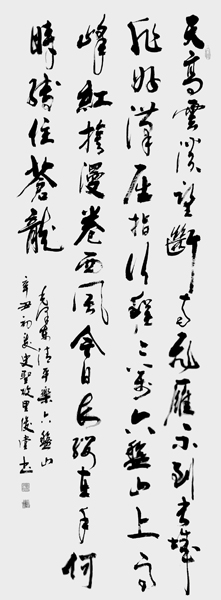 天高雲淡望斷南飛雁不到長城
非好漢屈指行程二萬六盤山上高
峰紅旗漫卷西風今日長纓在手何
時縛住蒼龍
毛澤東清平樂六盤山
辛丑初夏史聖故里書